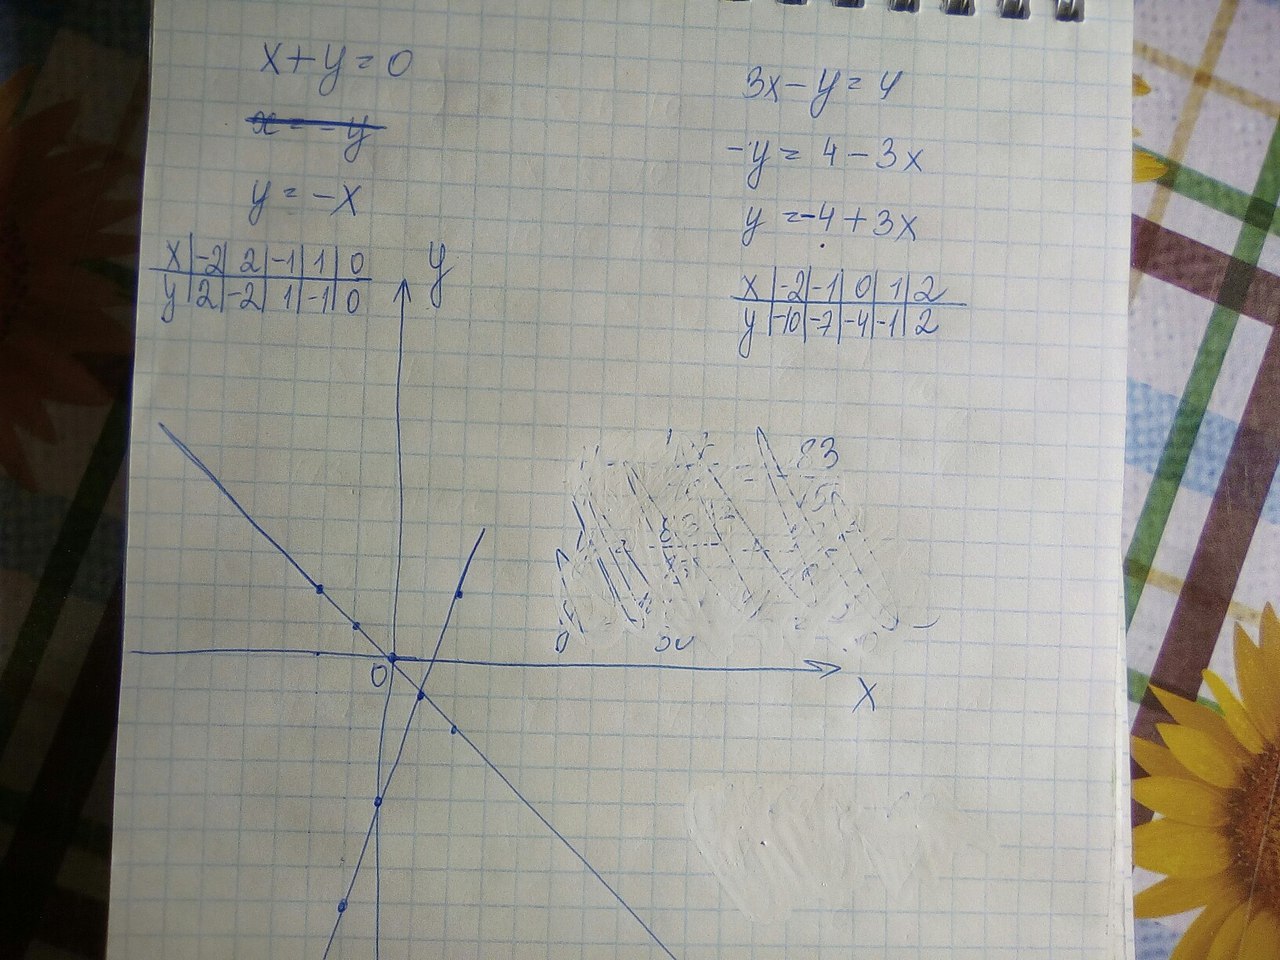 x+y=0
x=-y
y=-x
x|-2|2|-1|1|0
y|2|-2|1|-1|0
3x-y=4
-y=4-3x
y=-4+3x
x|-2|-1|0|1|2
y|-10|-7|-4|-1|2
y
83
0
x